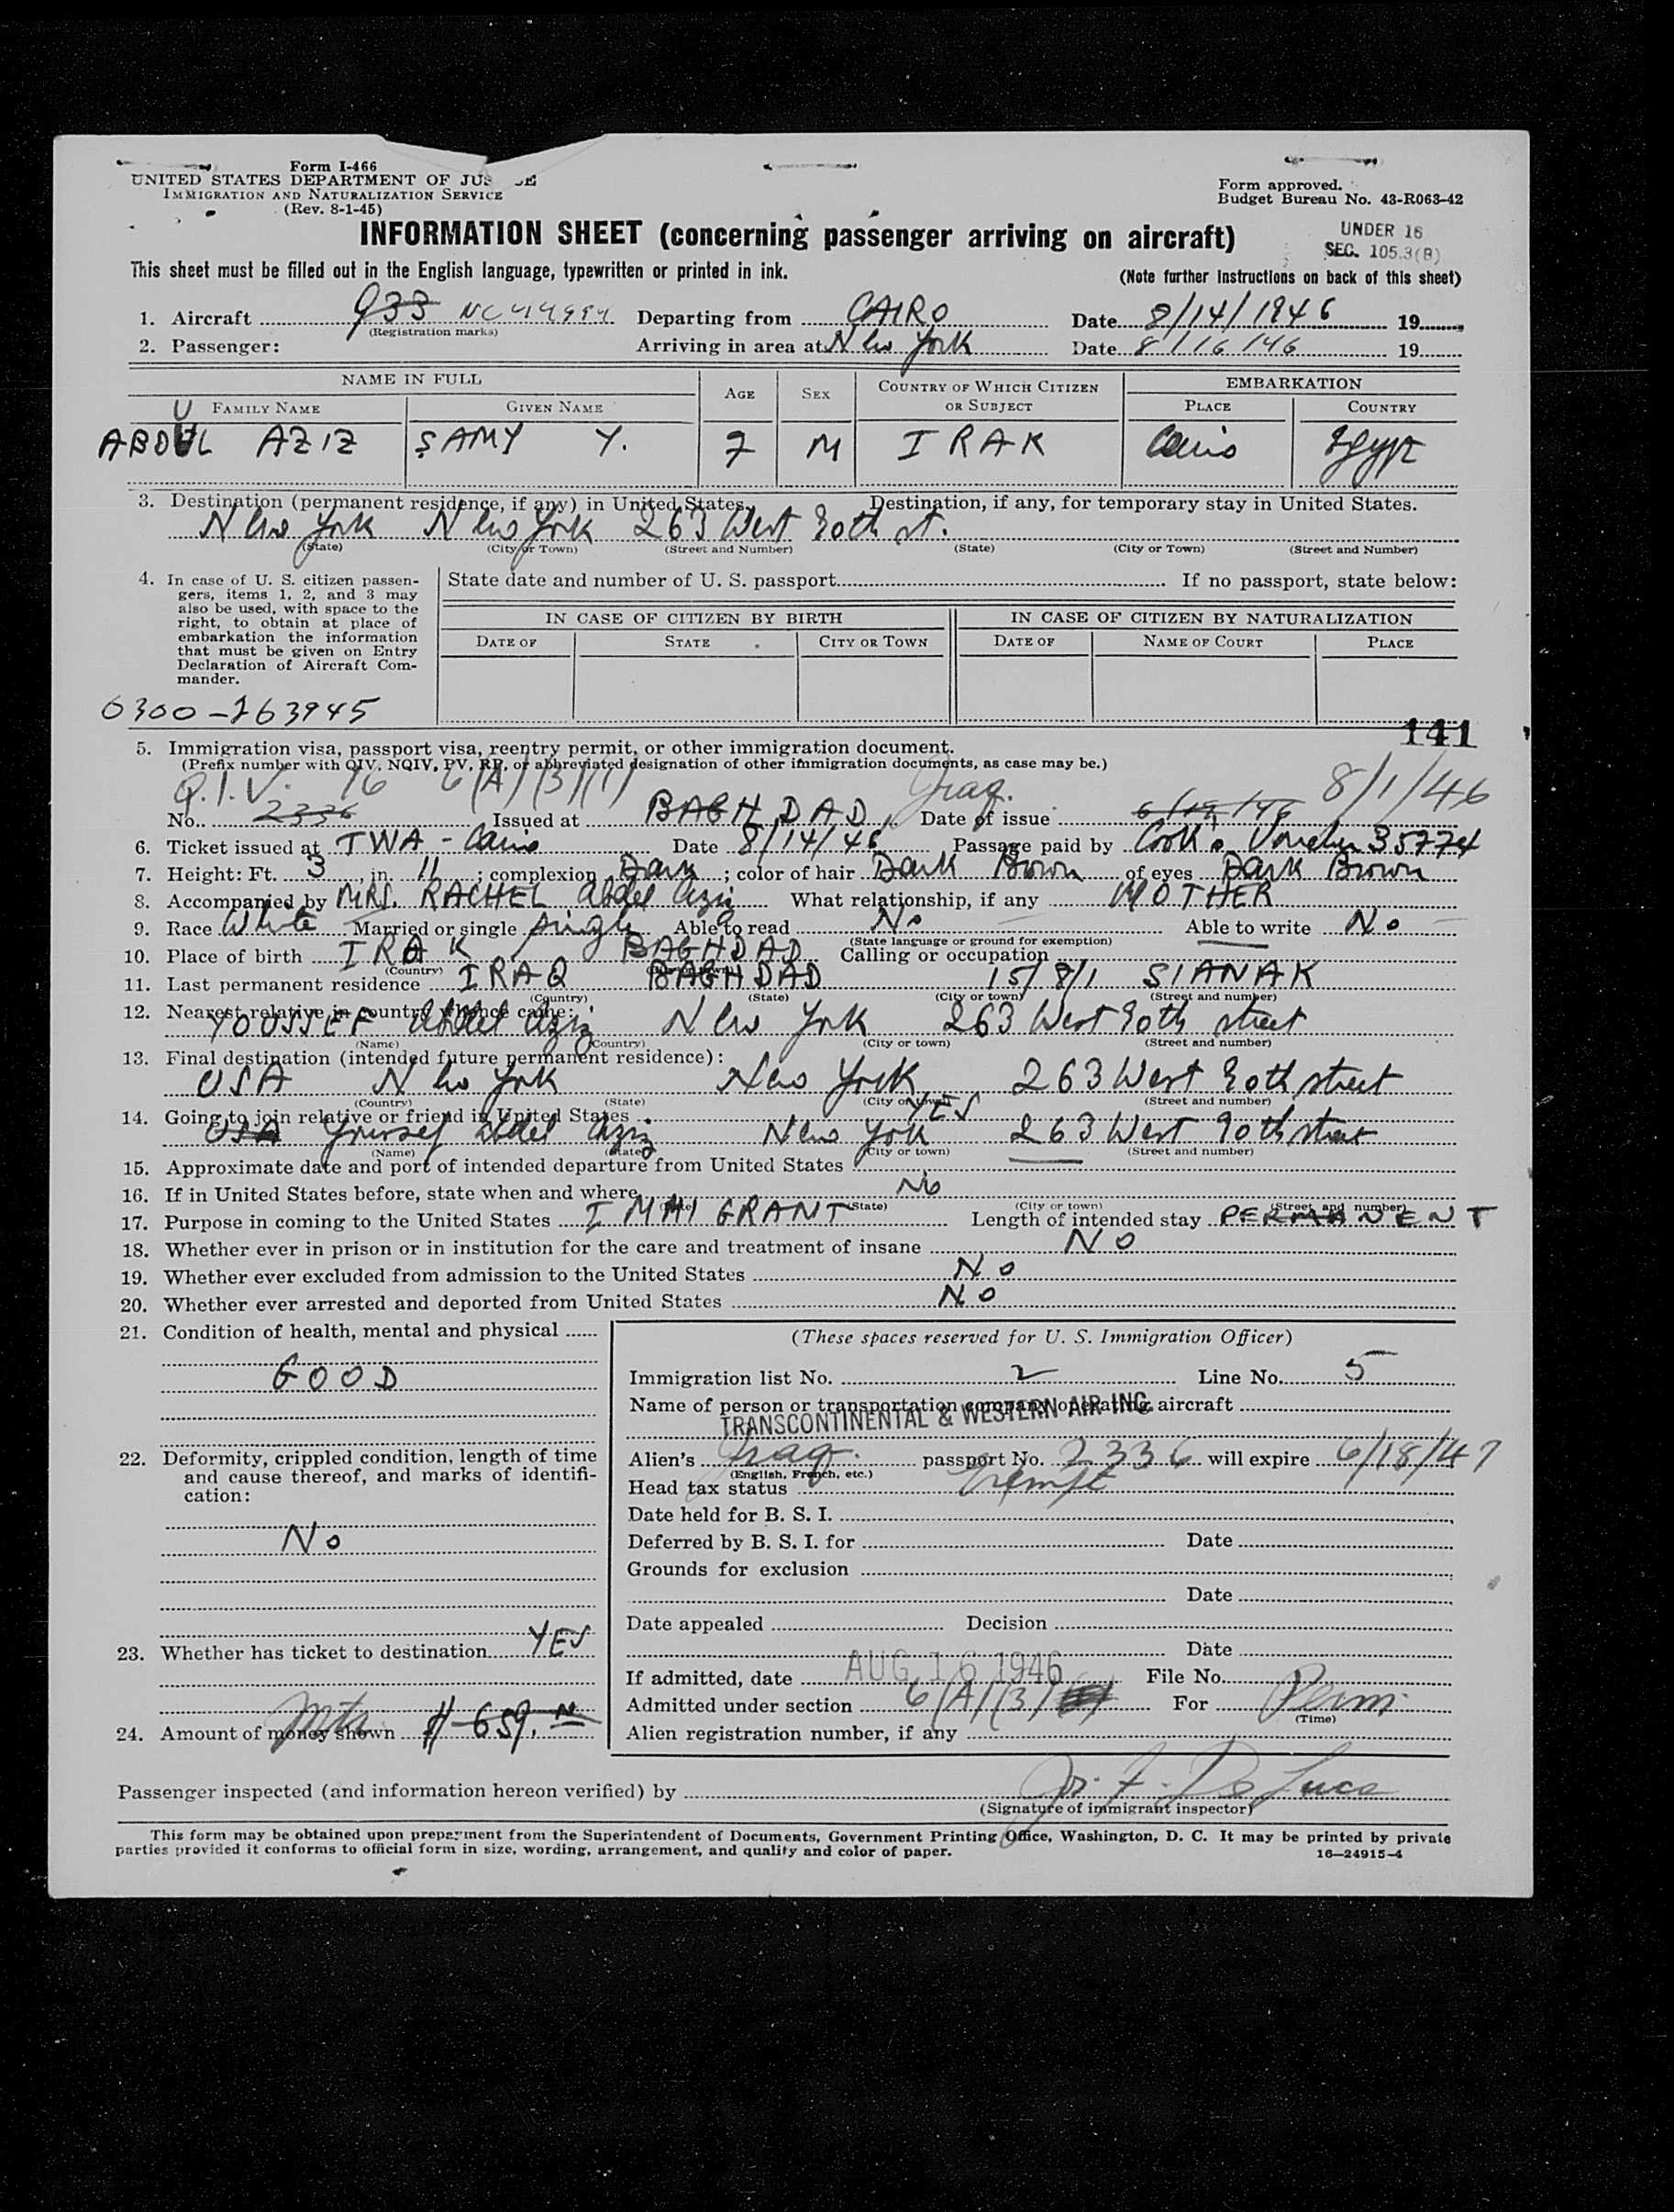 Form I-466
UNITED STATES DEPARTMENT OF JUS JE
IMMIGRATION AND NATURALIZATION SERVICE
(Rev. 8-1-45)
Form approved.
Budget Bureau No. 43-R063-42
INFORMATION SHEET (concerning passenger arriving on aircraft)
UNDER 16
SEC. 105.3(B)
This sheet must be filled out in the English language, typewritten or printed in ink.
(Note further instructions on back of this sheet)
1. Aircraft 933 NC44994 Departing from CAIRO Date 8/14/1946 19
(Registration marks)
2. Passenger: Arriving in area at New York Date 8/16/46 19
NAME IN FULL AGE SEX COUNTRY OF WHICH CITIZEN OR SUBJECT EMBARKATION
FAMILY NAME GIVEN NAME PLACE COUNTRY
U
ABDUL AZIZ SAMY Y. 7 M IRAK Cairo Egypt
3. Destination (permanent residence, if any) in United States. Destination, if any, for temporary stay in United States.
New York New York 263 West 90th st.
(State) (City or Town) (Street and Number) (State) (City or Town) (Street and Number)
4. In case of U. S. citizen passen-
gers, items 1, 2, and 3 may
also be used, with space to the
right, to obtain at place of
embarkation the information
that must be given on Entry
Declaration of Aircraft Com-
mander.
State date and number of U. S. passport If no passport, state below:
IN CASE OF CITIZEN BY BIRTH IN CASE OF CITIZEN BY NATURALIZATION
DATE OF STATE CITY OR TOWN DATE OF NAME OF COURT PLACE
0300-263945
141
5. Immigration visa, passport visa, reentry permit, or other immigration document.
(Prefix number with QIV, NQIV, PV, RP, or abbreviated designation of other immigration documents, as case may be.)
Q.I.V. 76 6(A)(3)(1) Iraq. 8/1/46
No. 2336 Issued at BAGHDAD Date of issue 6/19/46
6. Ticket issued at TWA - Cairo Date 8/14/46 Passage paid by Cook's Voucher 35774
7. Height: Ft. 3, in. 11; complexion Dark; color of hair Dark Brown of eyes Dark Brown
8. Accompanied by MRS. RACHEL Abdel Aziz What relationship, if any MOTHER
9. Race White Married or single single Able to read No Able to write No
(State language or ground for exemption)
10. Place of birth IRAK BAGHDAD Calling or occupation
(Country)
11. Last permanent residence IRAQ BAGHDAD 15/8/1 SIANAK
(Country) (State) (City or town) (Street and number)
12. Nearest relative in country whence came:
YOUSSEF Abdel Aziz New York 263 West 90th street
(Name) (Country) (City or town) (Street and number)
13. Final destination (intended future permanent residence):
USA New York New York 263 West 90th street
(Country) (State) (City or town) (Street and number)
14. Going to join relative or friend in United States YES
USA Youssef Abdel Aziz New York 263 West 90th street
(Name) (State) (City or town) (Street and number)
15. Approximate date and port of intended departure from United States
16. If in United States before, state when and where No
(Date) (State) (City or town) (Street and number)
17. Purpose in coming to the United States IMMIGRANT Length of intended stay PERMANENT
18. Whether ever in prison or in institution for the care and treatment of insane No
19. Whether ever excluded from admission to the United States No
20. Whether ever arrested and deported from United States No
21. Condition of health, mental and physical
GOOD
22. Deformity, crippled condition, length of time
and cause thereof, and marks of identifi-
cation:
No
23. Whether has ticket to destination YES
24. Amount of money shown $ 659.
(These spaces reserved for U. S. Immigration Officer)
Immigration list No. 2 Line No. 5
Name of person or transportation company operating aircraft
TRANSCONTINENTAL & WESTERN AIR INC.
Alien's Iraq. passport No. 2336 will expire 6/18/47
(English, French, etc.)
Head tax status Exempt
Date held for B. S. I.
Deferred by B. S. I. for Date
Grounds for exclusion
Date
Date appealed Decision
Date
If admitted, date AUG 16 1946 File No.
Admitted under section 6(A)(3) For Perm.
(Time)
Alien registration number, if any
Passenger inspected (and information hereon verified) by De Luca
(Signature of immigrant inspector)
This form may be obtained upon prepayment from the Superintendent of Documents, Government Printing Office, Washington, D. C. It may be printed by private
parties provided it conforms to official form in size, wording, arrangement, and quality and color of paper.
16—24915-4